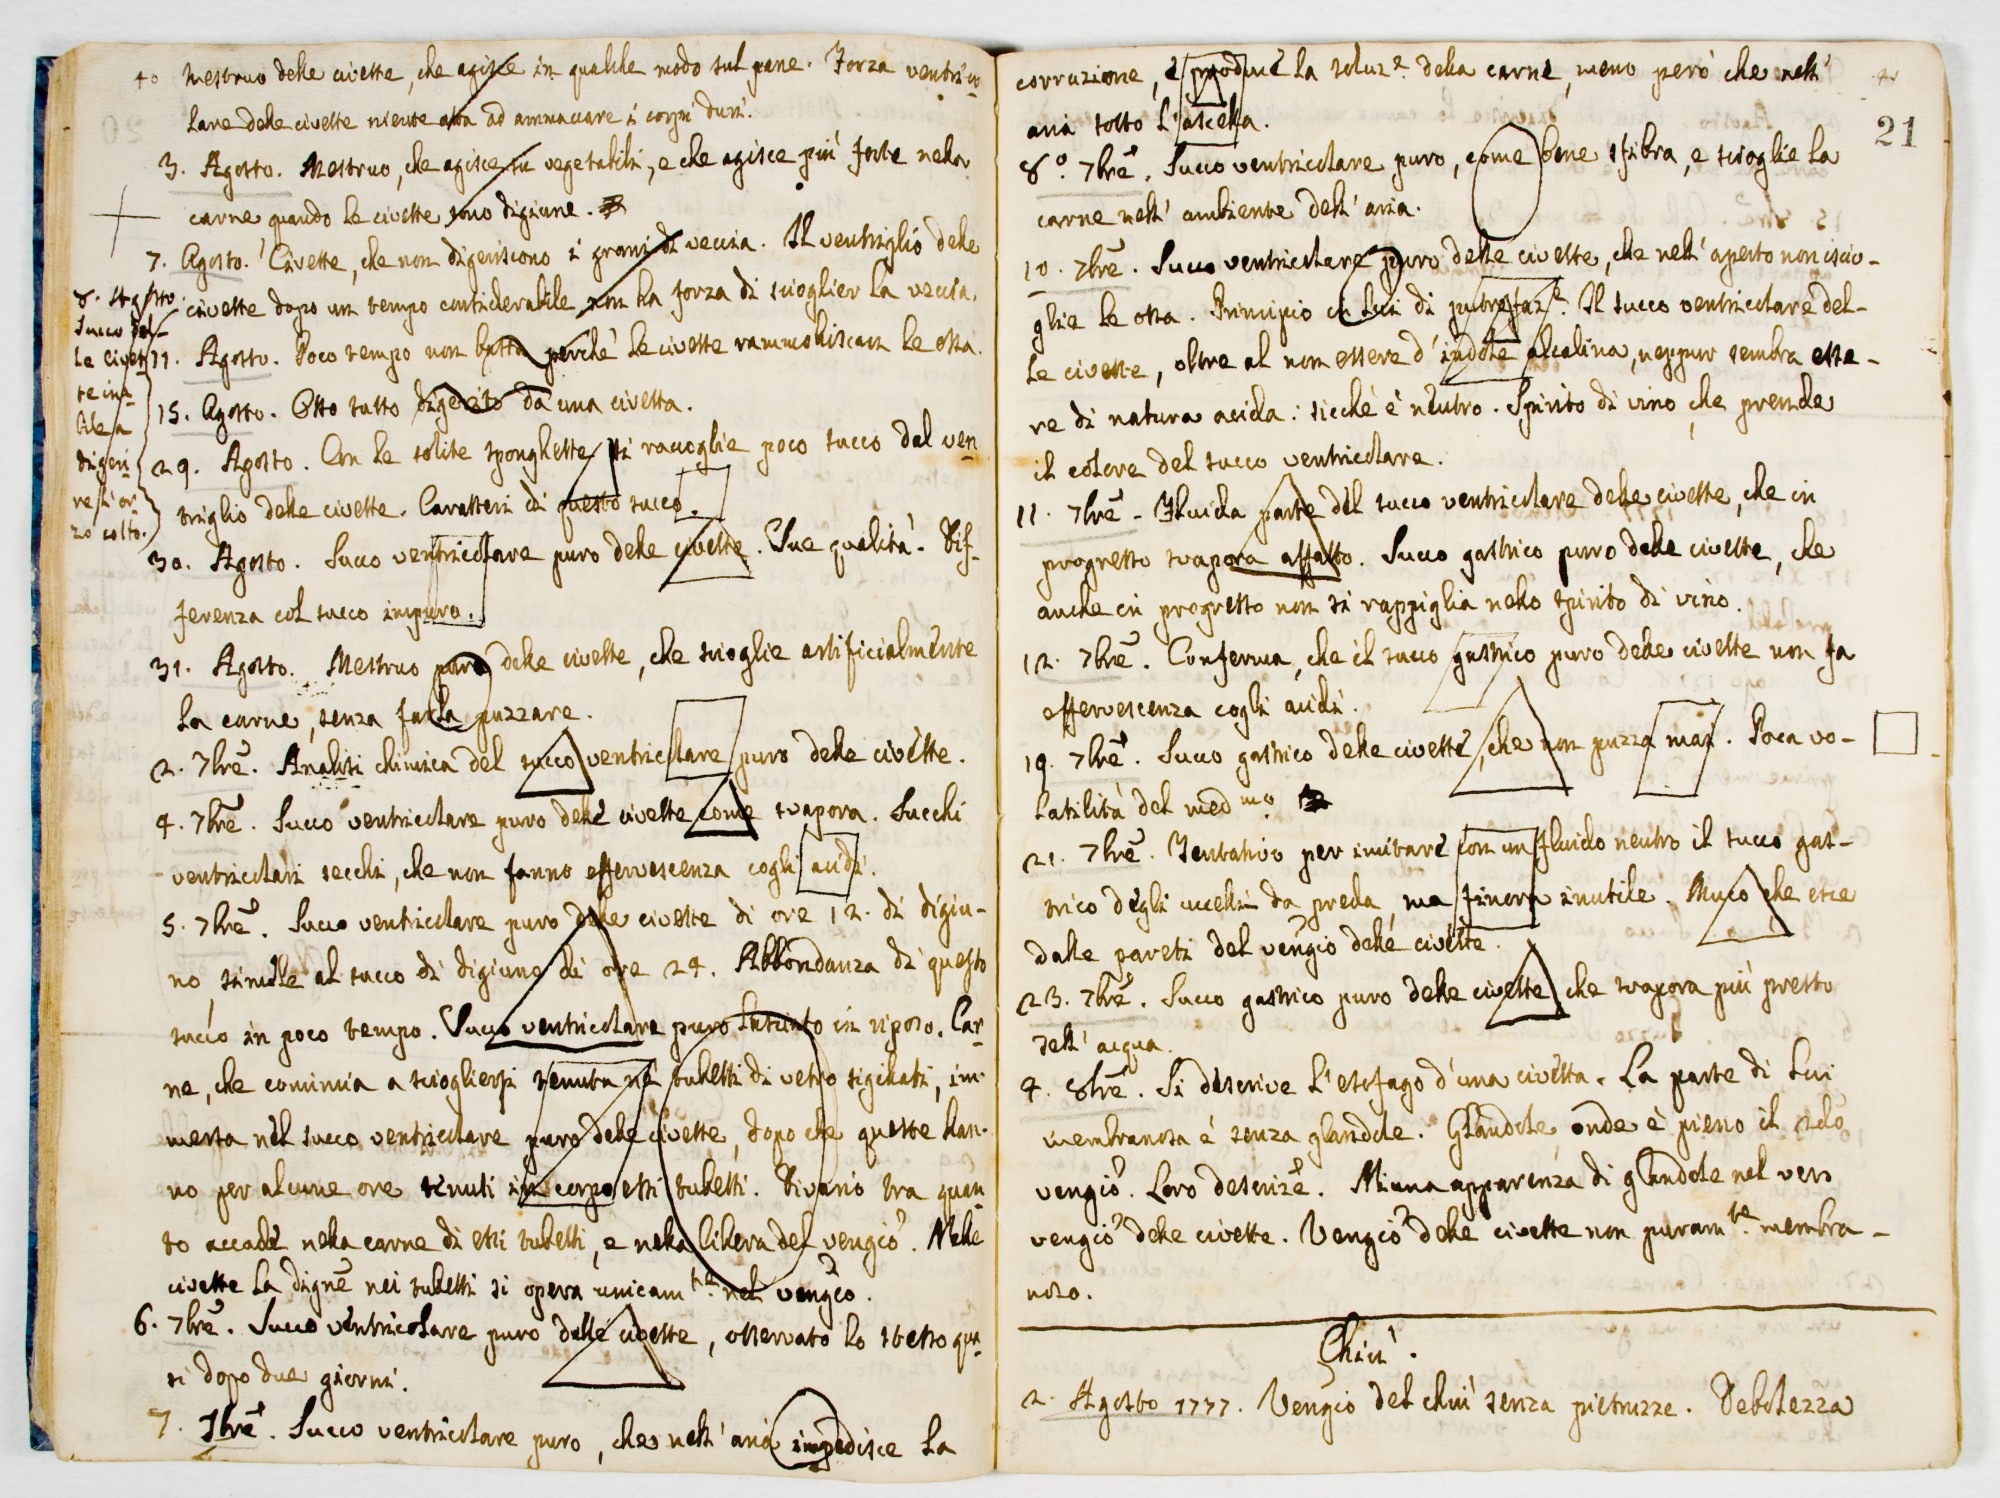 40 Mestruo delle civette, che agisce in qualche modo sul pane. Forza ventrico
lare delle civette niente atta ad ammaccare i corpi duri.
3. Agosto. Mestruo, che agisce su vegetabili, e che agisce più forte nella
carne quando le civette sono digiune.
7. Agosto. Civette, che non digeriscono i grani di veccia. Il ventriglio delle
civette dopo un tempo considerabile non ha forza di scioglier la veccia.
8. Agosto.
Succo del-
le civet
te ina-
bile a
digeri
re l'or
zo cotto.
11. Agosto. Poco tempo non basta perché le civette rammolliscan le ossa.
15. Agosto. Osso tutto digerito da una civetta.
29. Agosto. Con le solite sponghette si raccoglie poco succo dal ven
triglio delle civette. Caratteri di questo succo.
30. Agosto. Succo ventricolare puro delle civette. Sue qualità. Dif-
ferenza col succo impuro.
31. Agosto. Mestruo puro delle civette, che scioglie artificialmente
la carne, senza farla puzzare.
2. 7bre. Analisi chimica del succo ventricolare puro delle civette.
4. 7bre. Succo ventricolare puro delle civette come svapora. Succhi
ventricolari secchi, che non fanno effervescenza cogli acidi.
5. 7bre. Succo ventricolare puro delle civette di ore 12. di digiu-
no, simile al succo di digiuno di ore 24. Abbondanza di questo
succo in poco tempo. Succo ventricolare puro in riposo. Car
ne, che comincia a sciogliersi tenuta nei tubetti di vetro sigillati, im
mersa nel succo ventricolare puro delle civette, dopo che queste han-
no per alcune ore tenuti in corpo essi tubetti. Divario tra quan
to accade nella carne di essi tubetti, e nella libera del vengio. Nelle
civette la digne nei tubetti si opera unicamte nel vengio.
6. 7bre. Succo ventricolare puro delle civette, osservato lo stesso qua
si dopo due giorni.
7. 7bre. Succo ventricolare puro, che nell' aria impedisce la
21
corruzione, e produce la soluze della carne, meno però che nell'
aria sotto l'ascella.
8º. 7bre. Succo ventricolare puro, come bene sfibra, e scioglie la
carne nell' ambiente dell' aria.
10. 7bre. Succo ventricolare puro delle civette, che nell' aperto non iscio-
glie le ossa. Principio in lui di putrefaze. Il succo ventricolare del-
le civette, oltre al non essere d' indole alcalina, neppur sembra esse-
re di natura acida: sicché è neutro. Spirito di vino, che prende
il colore del succo ventricolare.
11. 7bre. Fluida parte del succo ventricolare delle civette, che in
progresso svapora affatto. Succo gastrico puro delle civette, che
anche in progresso non si rappiglia nello spirito di vino.
12. 7bre. Conferma, che il succo gastrico puro delle civette non fa
effervescenza cogli acidi.
19. 7bre. Succo gastrico delle civette, che non puzza mai. Poca vo-
latilità del medmo
21. 7bre. Tentativo per imitare con un fluido neutro il succo gas-
trico degli uccelli da preda, ma finora inutile. Muco che esce
dalle pareti del vengio delle civette.
23. 7bre. Succo gastrico puro delle civette che svapora più presto
dell' acqua.
4. 8bre. Si descrive l' esofago d' una civetta. La parte di lui
membranosa è senza glandole. Glandole onde è pieno il
vengio. Loro descrize. Niuna apparenza di glandole nel vero
vengio delle civette. Vengio delle civette non puramte membra-
noso.
Chiù.
2. Agosto 1777. Vengio del chiù senza pietruzze. Debolezza